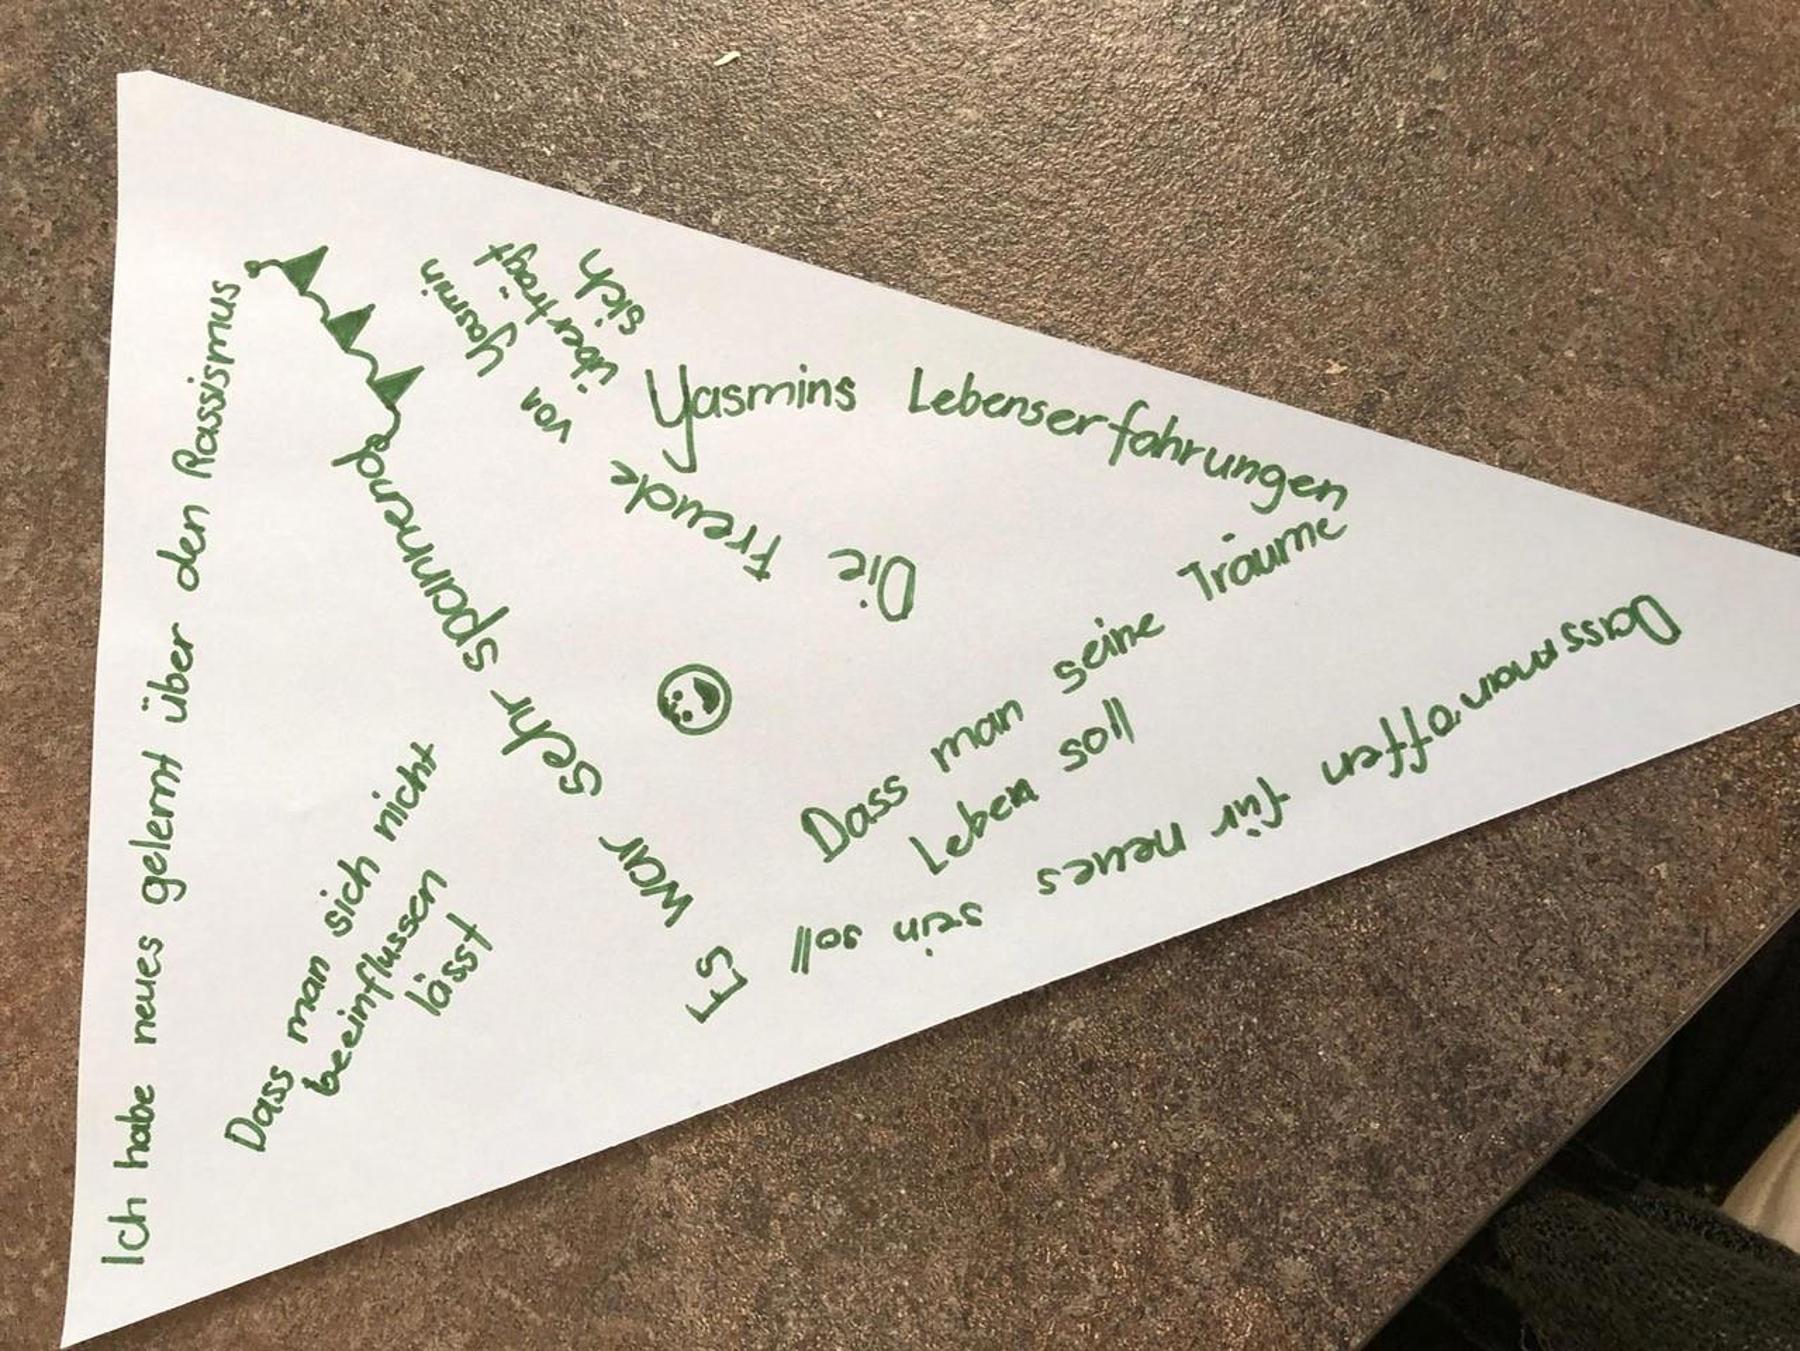 Ich habe neues gelernt über den Rassismus
Dass man sich nicht
beeinflussen
lässt
Es war sehr spannend
Die freude von Yasmin
überträgt
sich
Yasmins Lebenserfahrungen
Dass man seine Träume
Leben soll
Dass man offen für neues sein soll